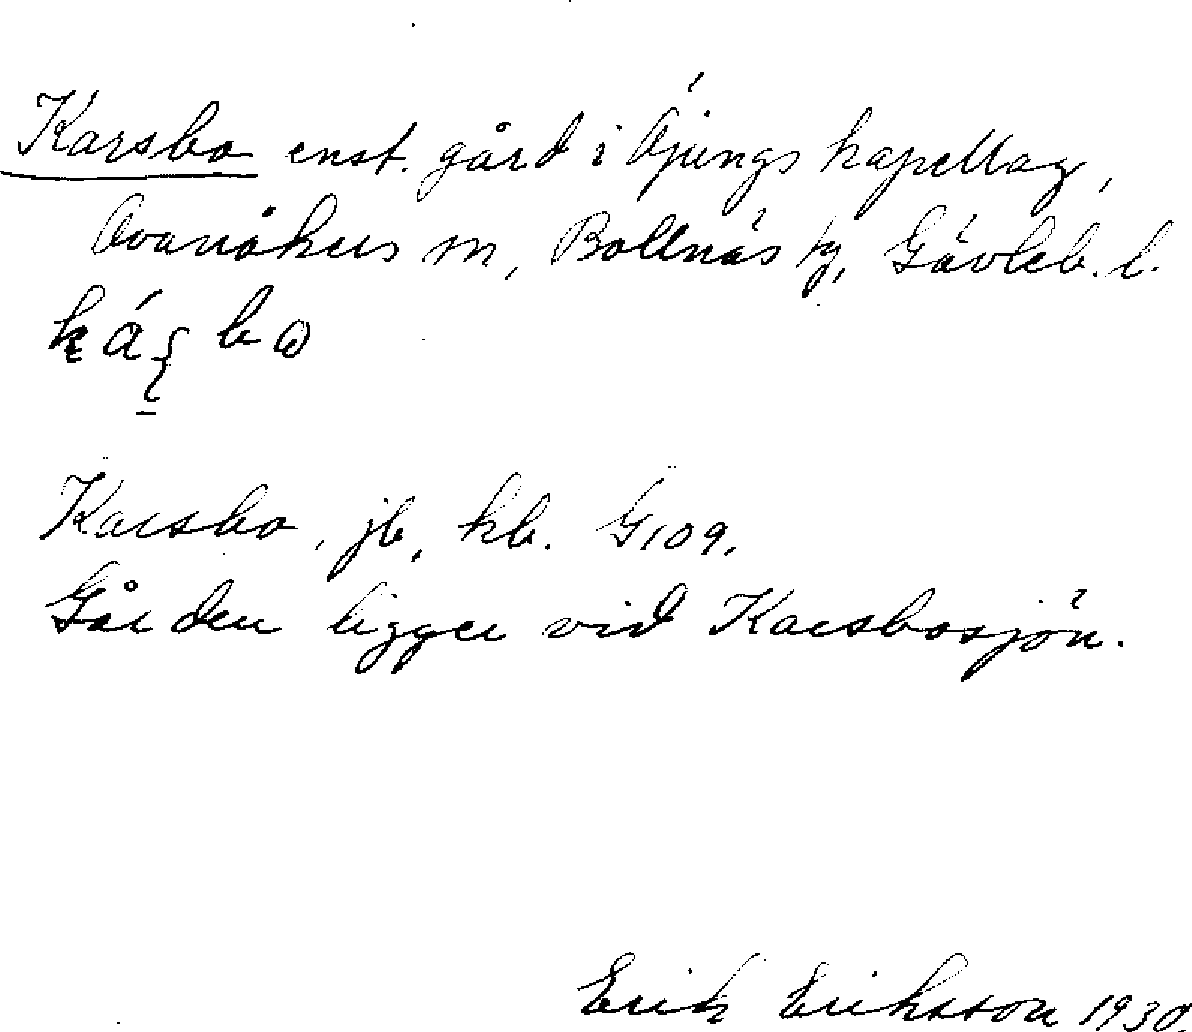 Karsbo enst. gård i Öjungs kapellag,
Ovanåkers sn, Bollnäs tg, Gävleb. l.
Karsbo, jb, kb. G109.
Gården ligger vid Karsbosjön.
Erik Eriksson 1930.